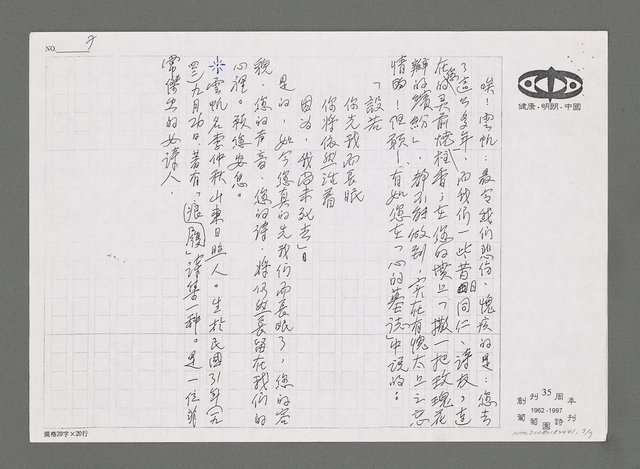 唉！雲帆，最令我們悲傷、愧疚的是：您去
了這麼多年，而我們一些昔日同仁、詩友，連
在您的靈前燒柱香；在您的墳上「撒一把玫瑰花
瓣的繽紛」，都不能做到，實在有愧太上之忘
情的！但願，有如您在「心的墓誌」中說的：
「設若
你先我而長眠
你將依然活著
因為，我尚未死去」。
是的，如今您真的先我們而長眠了，您的容
貌，您的聲音，您的詩，將仍然長留在我們的
心裡。願您安息。
※雲帆名李仲秋山東日照人。生於民國31年（一九
四二）九月26日，著有「痕履」詩集一種。是一位非
常傑出的女詩人。
NO. 7
規格20字×20行
健康・明朗・中國
創刊35周年
1962-1997
葡萄園詩刊